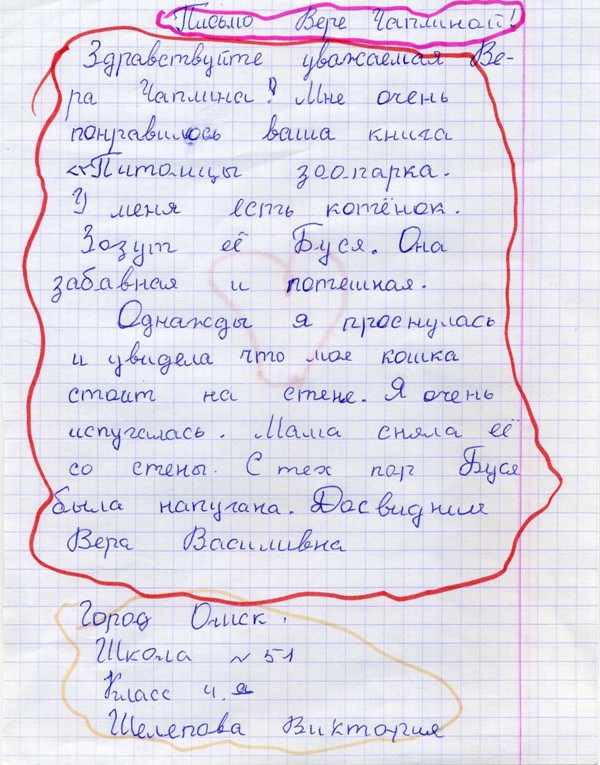 Письмо Вере Чаплиной!
Здравствуйте уважаемая Ве-
ра Чаплина! Мне очень
понравилось ваша книга
«Питомцы зоопарка.
У меня есть котёнок.
Зовут её Буся. Она
забавная и потешная.
Однажды я проснулась
и увидела что моя кошка
стоит на стене. Я очень
испугалась. Мама сняла её
со стены. С тех пор Буся
была напугана. Досвидния
Вера Василивна
Город Омск.
Школа № 51
Класс 4.
Шелепова Виктория